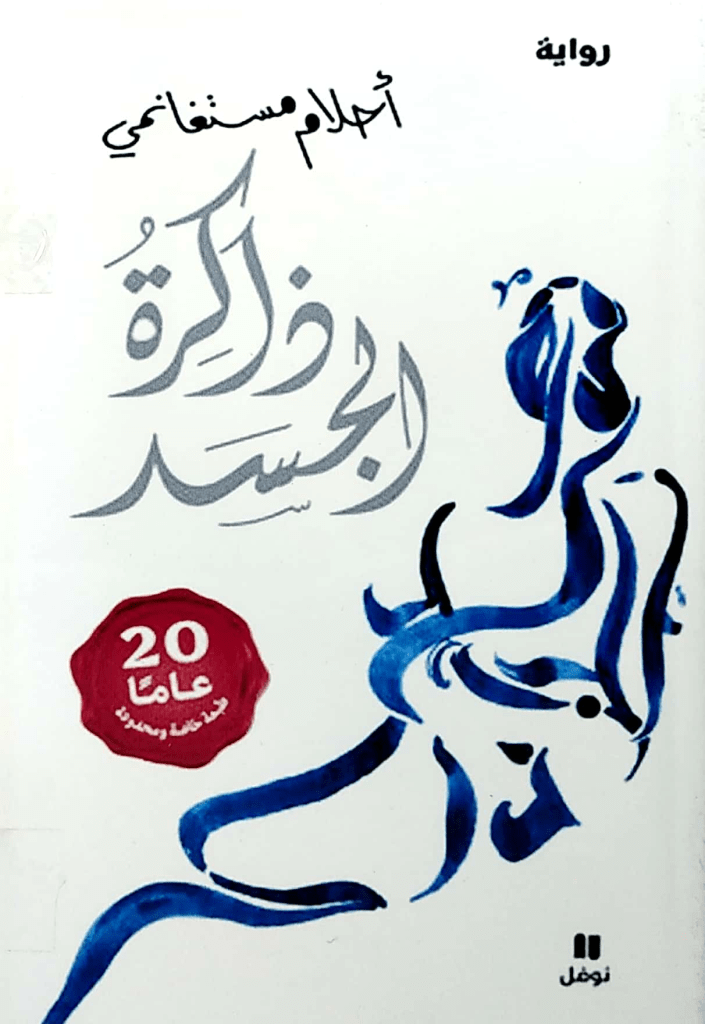 رواية
أحلام مستغانمي
ذاكرةُ
الجسد
20
عامًا
طبعة خاصة ومحدودة
نوفل